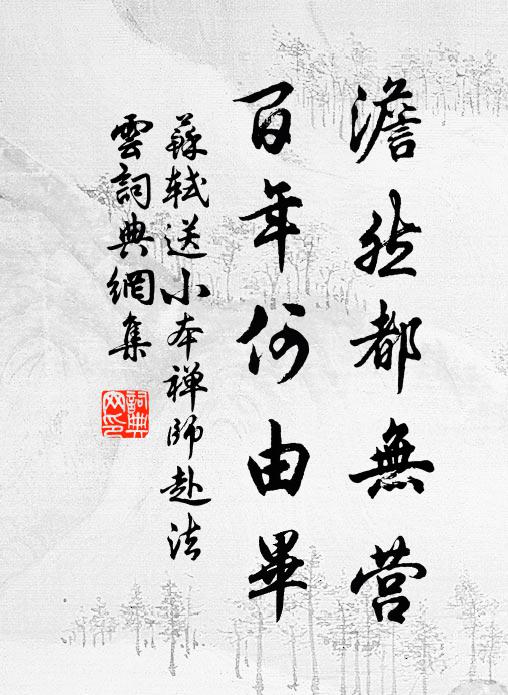 澹然都無營
百年何由畢
蘇軾送小本禪師赴法
雲詞典網集
詞典
网印